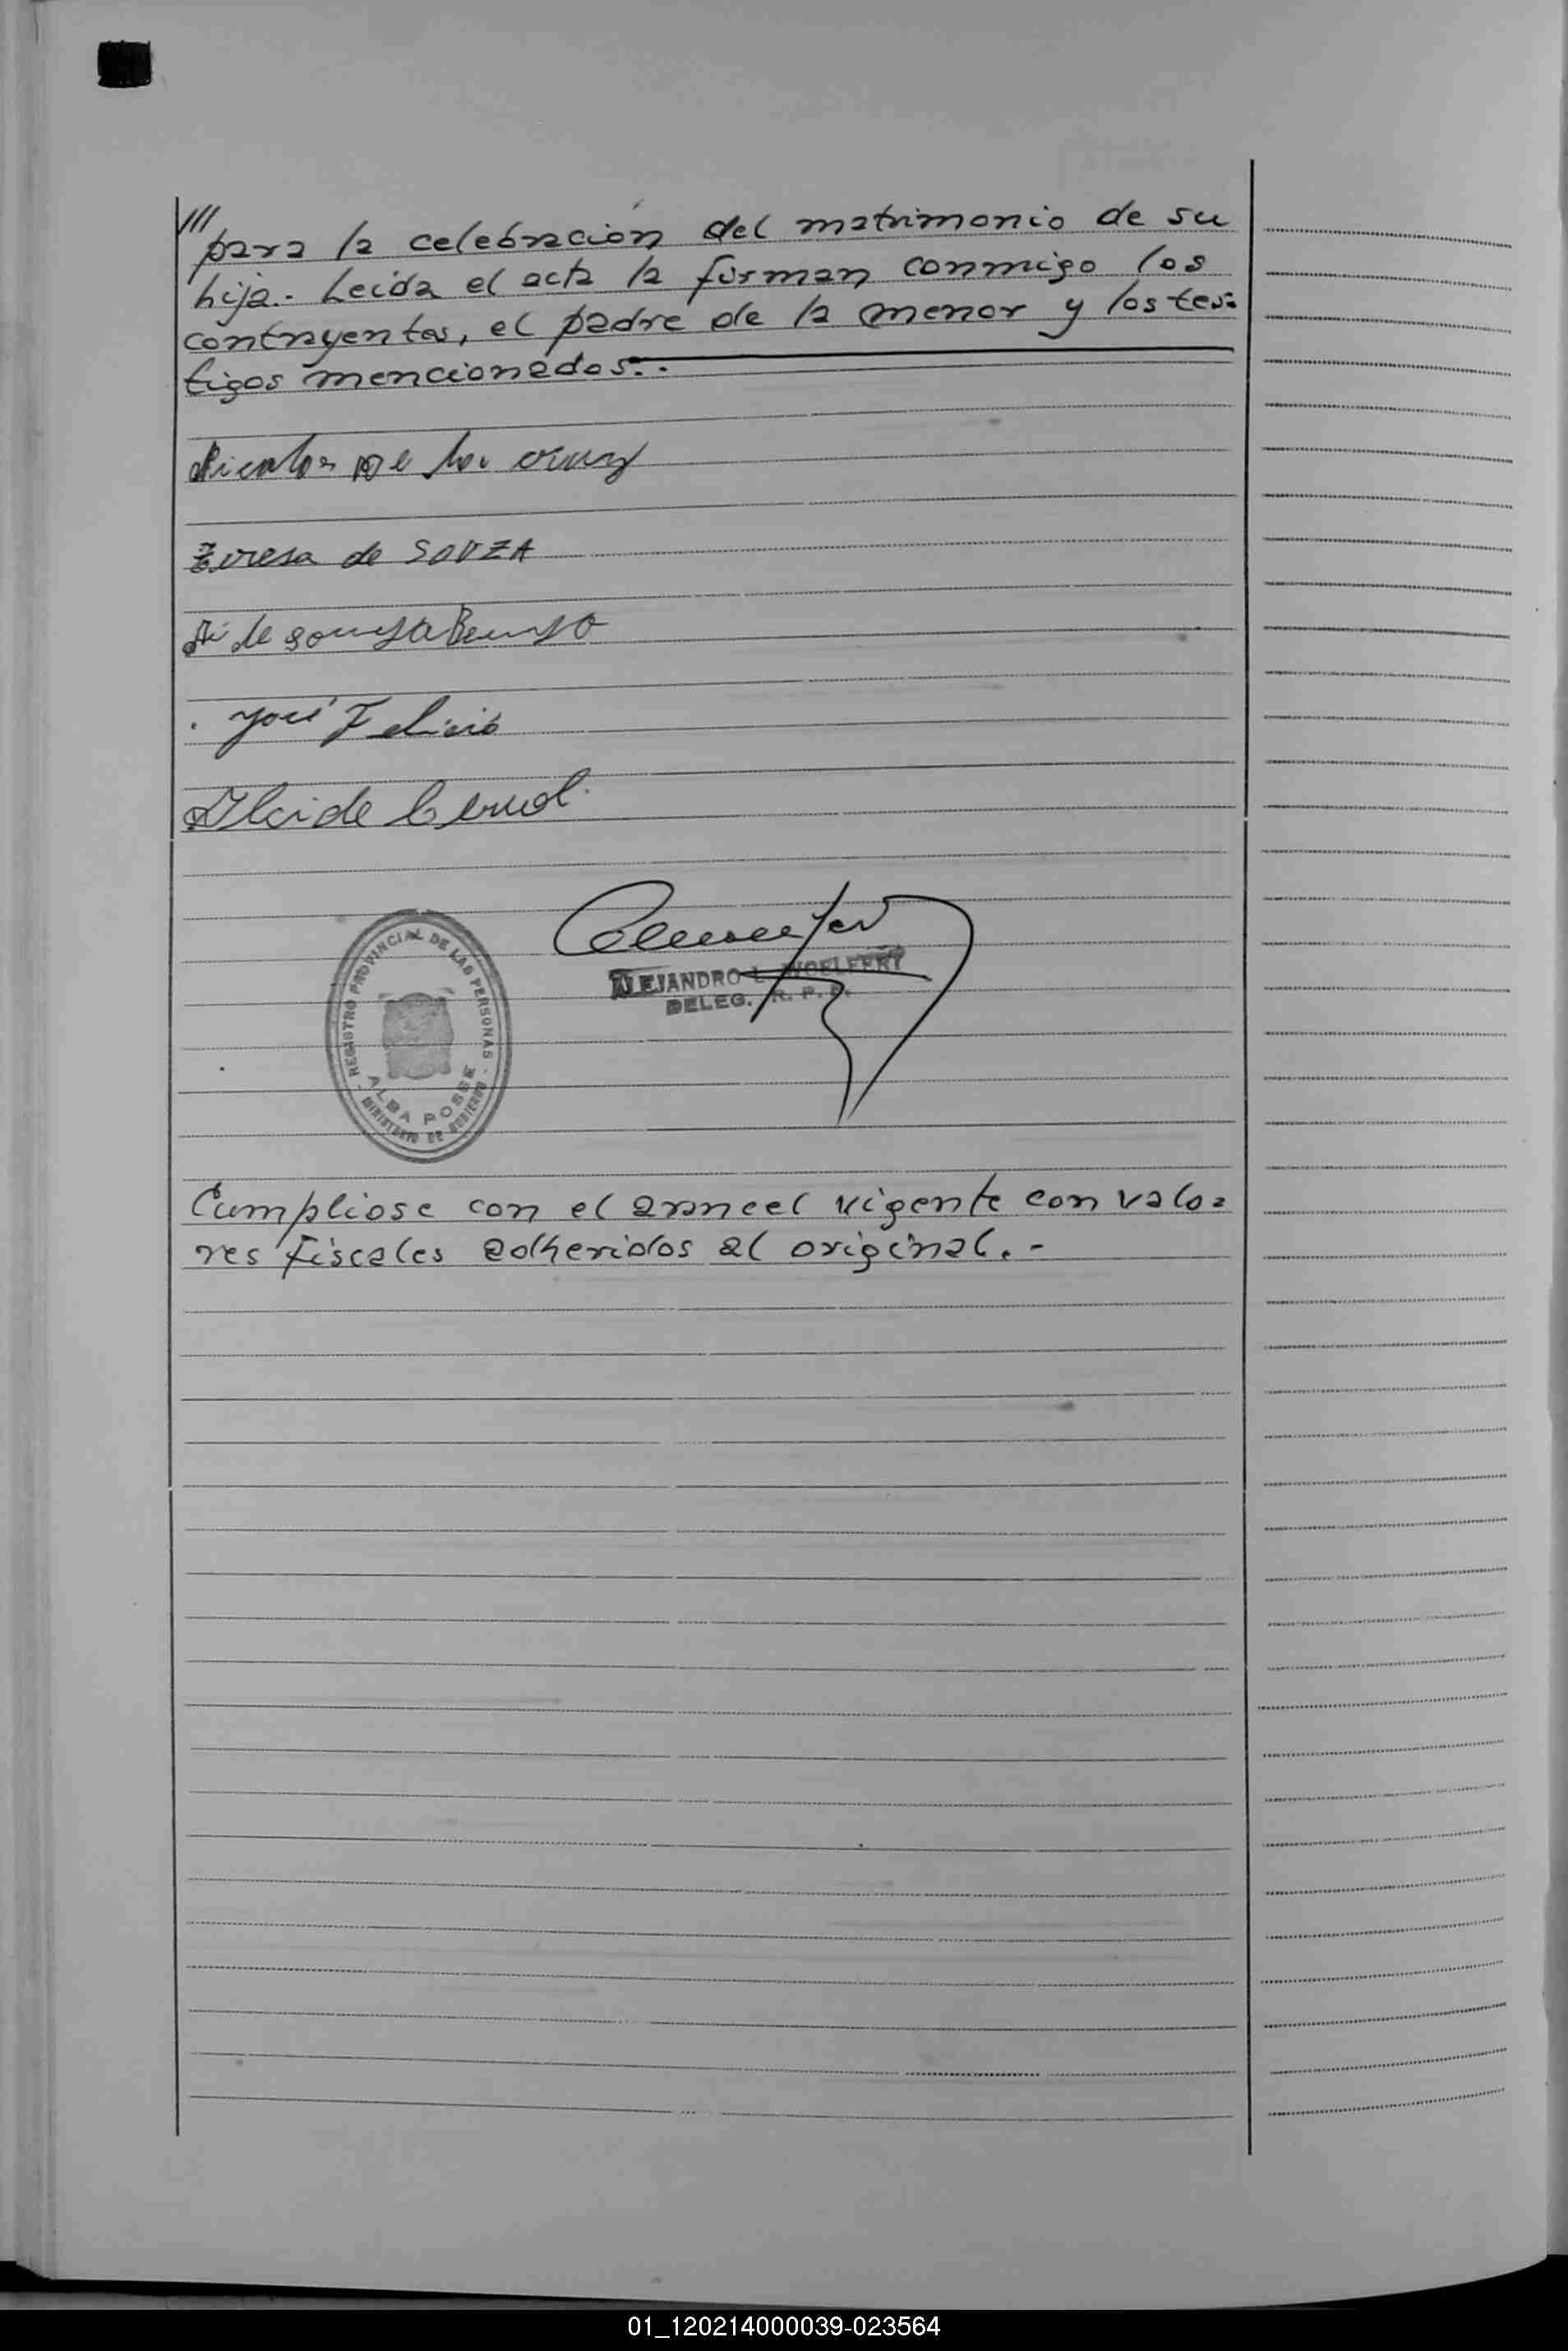 /// para la celebración del matrimonio de su
hija.- Leída el acta la firman conmigo los
contrayentes, el padre de la menor y los tes=
tigos mencionados.-.
Nicolas de la cruz
Teresa de SOUZA
de
José Felicio
Alcide
REGISTRO PROVINCIAL DE LAS PERSONAS
ALBA POSSE
MINISTERIO DE GOBIERNO
ALEJANDRO L. WOELFERT
DELEG. R. P. P.
Cumpliose con el arancel vigente con valo=
res fiscales adheridos al original.-
01_120214000039-023564